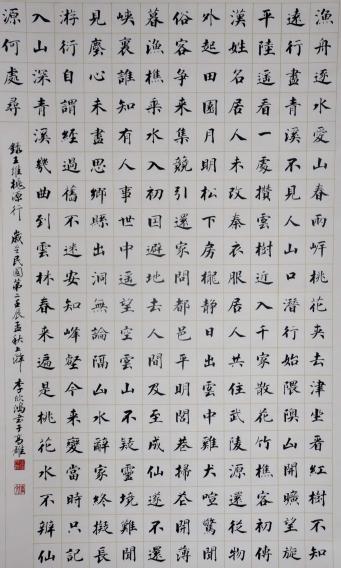 漁舟逐水愛山春兩岸桃花夾去津坐看紅樹不知
遠行盡青溪不見人山口潛行始隈隩山開曠望旋
平陸遙看一處攢雲樹近入千家散花竹樵客初傳
漢姓名居人未改秦衣服居人共住武陵源還從物
外起田園月明松下房櫳靜日出雲中雞犬喧驚聞
俗客爭來集競引還家問都邑平明閭巷掃花開薄
暮漁樵乘水入初因避地去人間及至成仙遂不還
峽裏誰知有人事世中遙望空雲山不疑靈境難聞
見塵心未盡思鄉縣出洞無論隔山水辭家終擬長
游衍自謂經過舊不迷安知峰壑今來變當時只記
入山深青溪幾曲到雲林春來遍是桃花水不辨仙
源何處尋
錄王維桃源行 歲在民國第二壬辰孟秋上澣 李欣鴻書于高雄